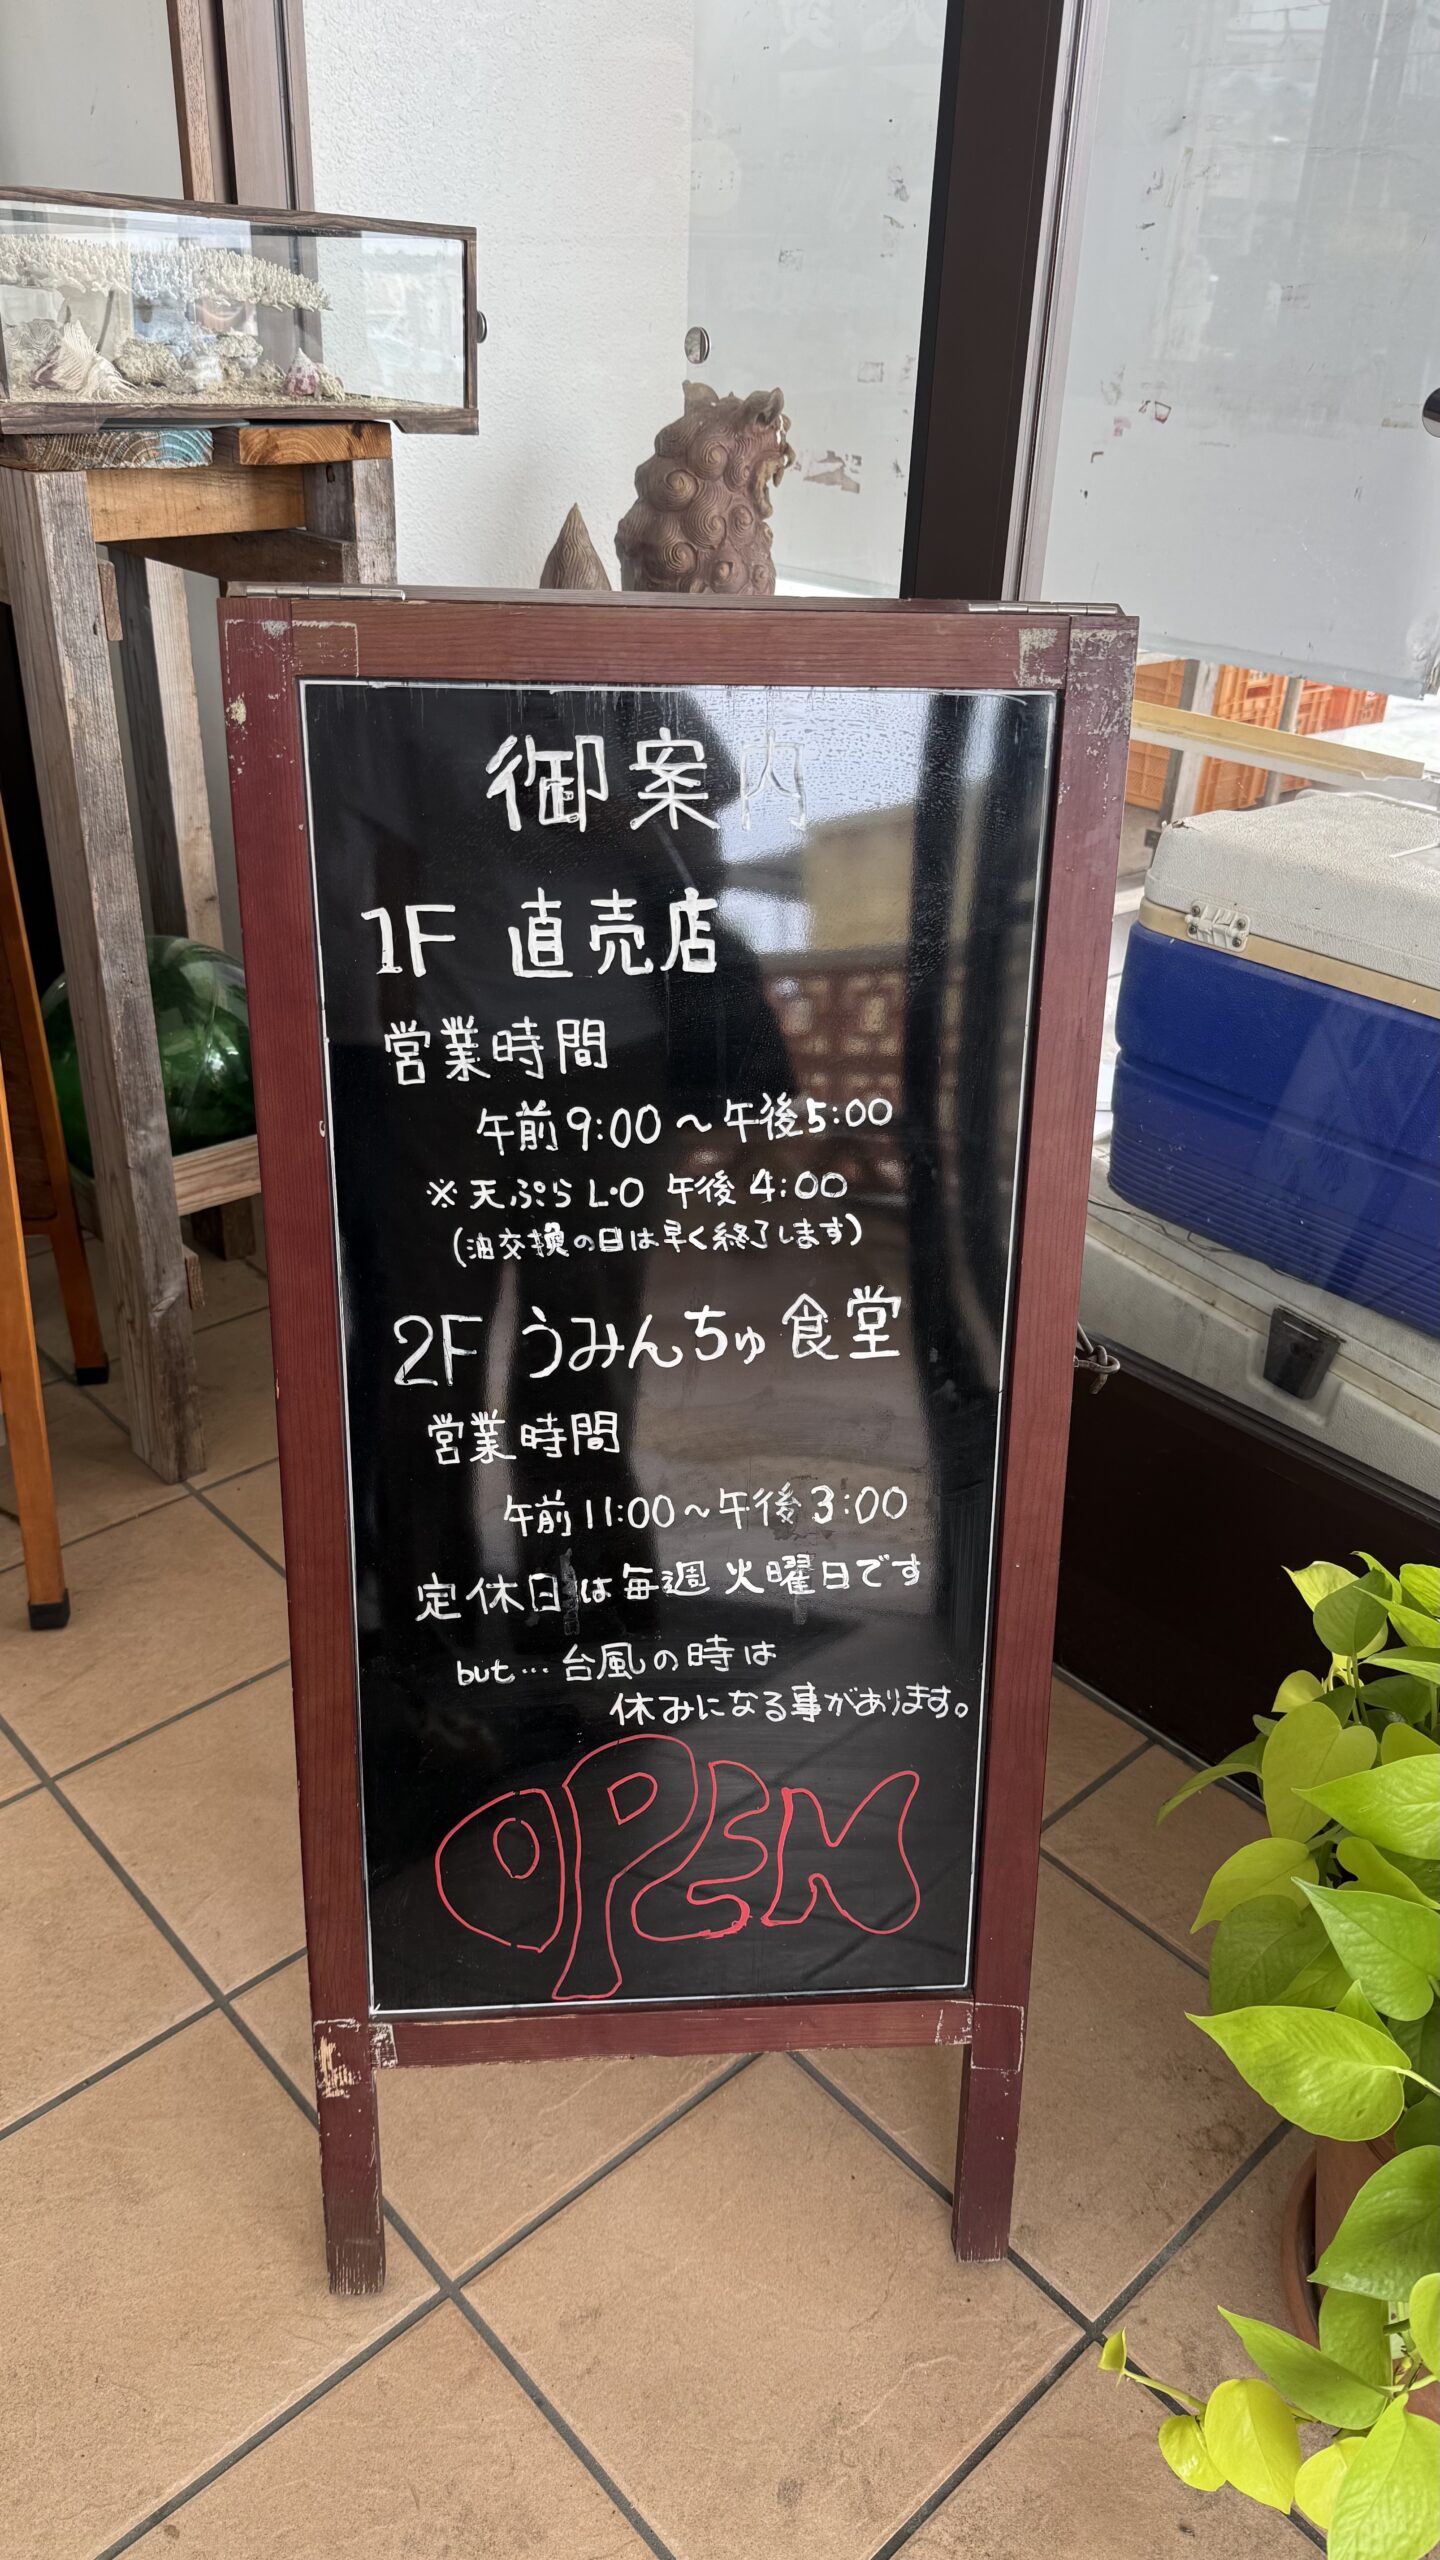 御案内
1F 直売店
営業時間
午前9:00～午後5:00
※天ぷらL・O 午後4:00
(油交換の日は早く終了します)
2F うみんちゅ食堂
営業時間
午前11:00～午後3:00
定休日は毎週火曜日です
but…台風の時は
休みになる事があります。
OPEN